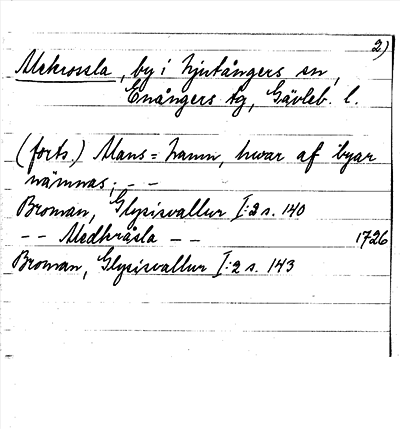 2)
Medkrossla, by i Njutångers sn,
Enångers tg, Gävleb. l.
(forts.) Mans=namn, hwar af byar
nämnas; - -
Broman, Glysisvallur I:2 s. 140
- - Medkråsla - - 1726
Broman, Glysisvallur I:2 s. 143